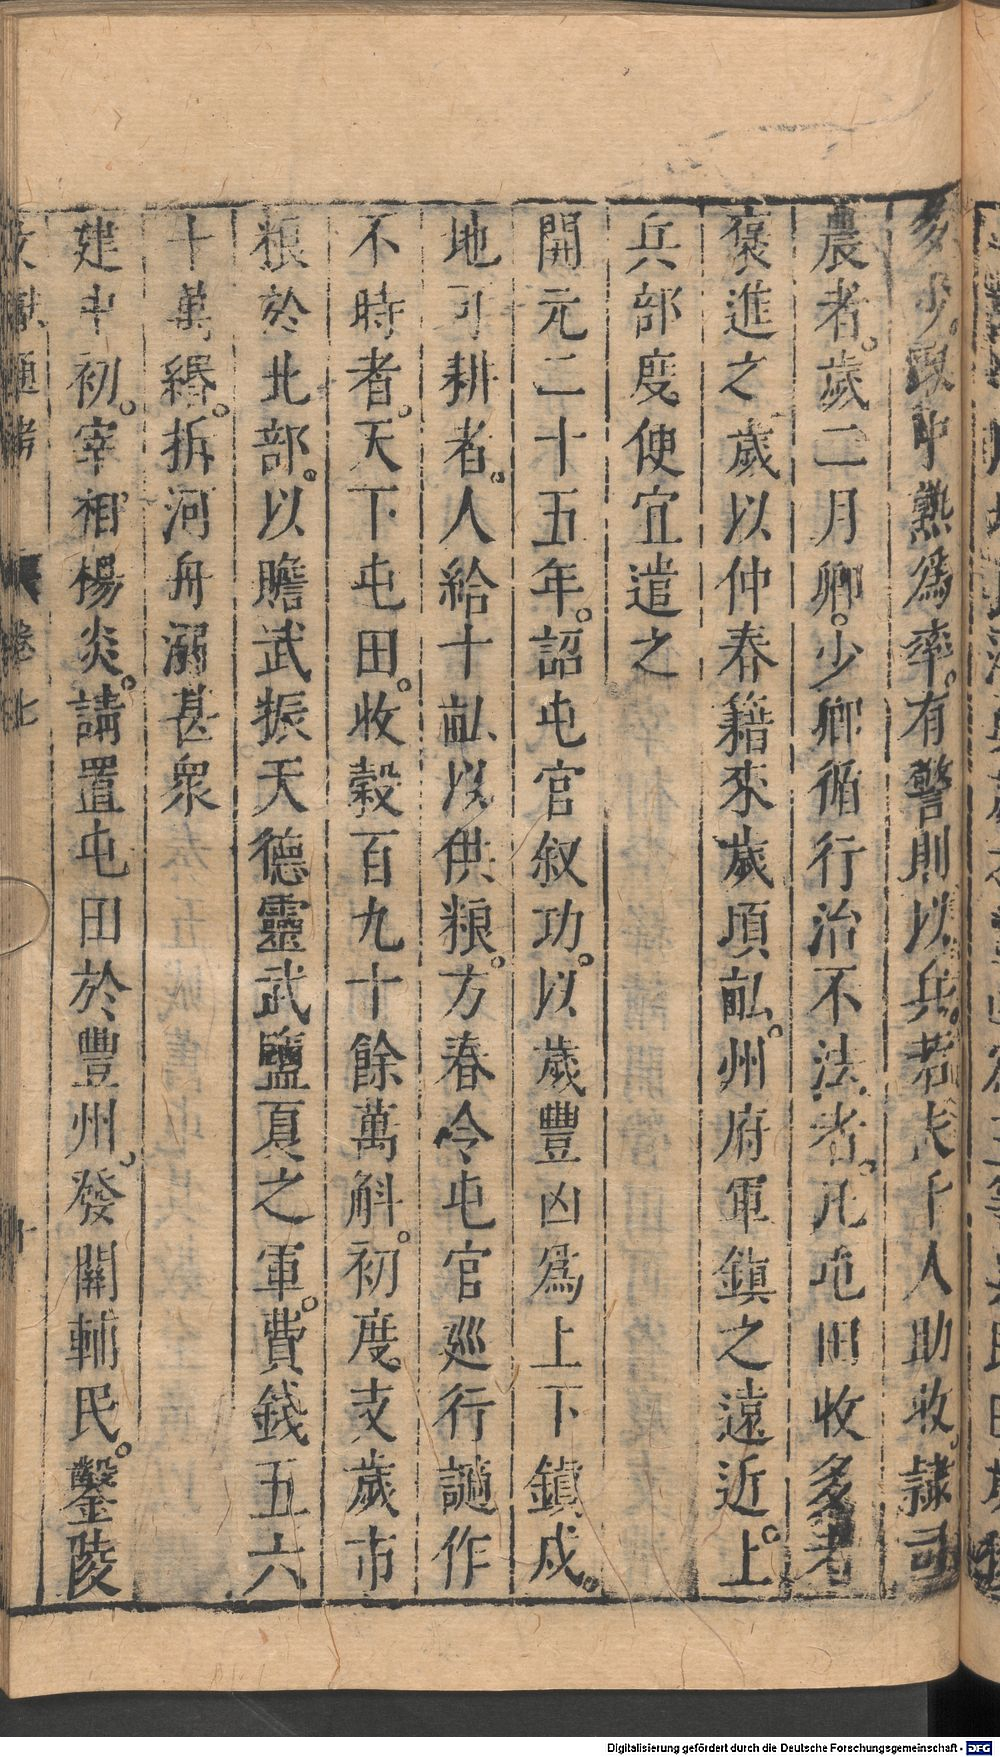 多少。取中熟爲率。有警則以兵。若夫千人助收。隷司
農者。歲二月卿。少卿循行治不法者。凡屯田收多者
褒進之歲以仲春籍來歲頃畝。州府軍鎮之遠近。上
兵部度便宜遣之
開元二十五年。詔屯官叙功。以歲豐凶爲上下鎮戍。
地可耕者。人給十畝以供粮。方春令屯官巡行謫作
不時者。天下屯田。收穀百九十餘萬斛。初度支歲市
粮於北部。以贍武振天德靈武鹽夏之軍。費錢五六
十萬緡。拆河舟溺甚衆
建中初。宰相楊炎。請置屯田於豐州。發關輔民。鑿陵
文獻通考
卷七
十
Digitalisierung gefördert durch die Deutsche Forschungsgemeinschaft - DFG